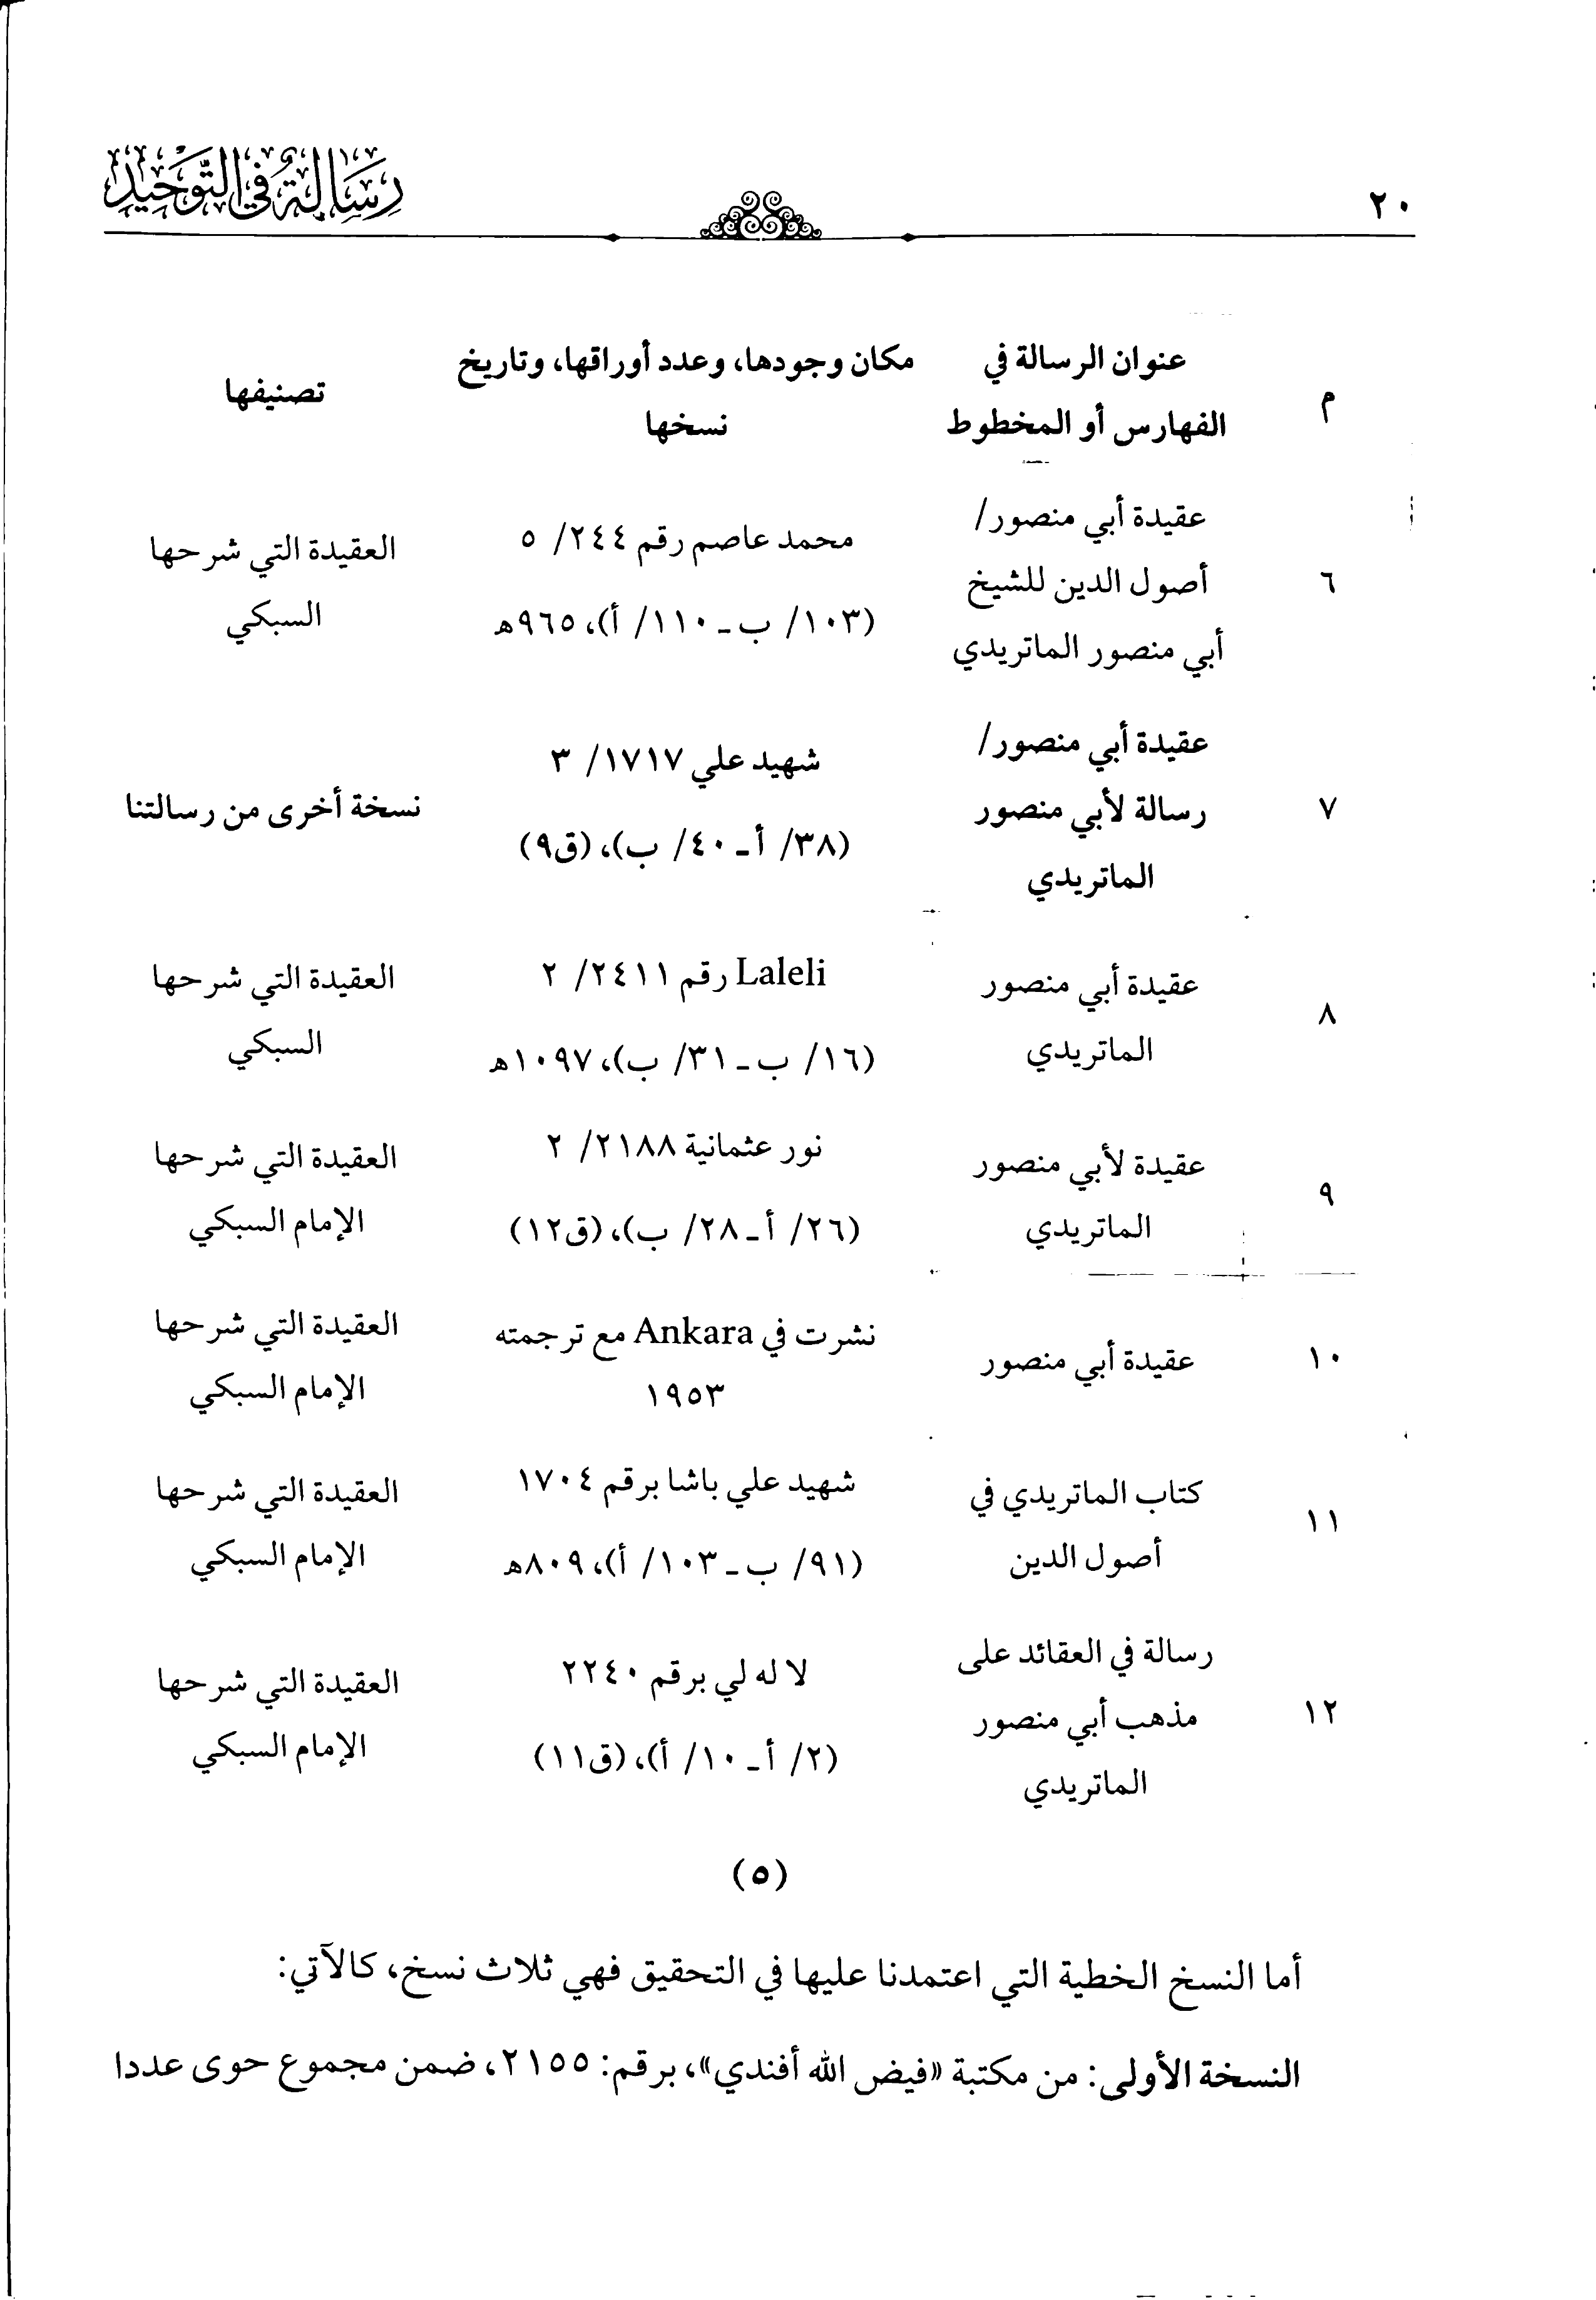 ٢٠
رسالة في التوحيد
م
عنوان الرسالة في
الفهارس أو المخطوط
مكان وجودها، وعدد أوراقها، وتاريخ
نسخها
تصنيفها
٦
عقيدة أبي منصور/
أصول الدين للشيخ
أبي منصور الماتريدي
محمد عاصم رقم ٢٤٤/ ٥
(١٠٣/ ب ـ ١١٠/ أ)، ٩٦٥هـ
العقيدة التي شرحها
السبكي
٧
عقيدة أبي منصور/
رسالة لأبي منصور
الماتريدي
شهيد علي ١٧١٧/ ٣
(٣٨/ أ ـ ٤٠/ ب)، (ق٩)
نسخة أخرى من رسالتنا
٨
عقيدة أبي منصور
الماتريدي
Laleli رقم ٢٤١١/ ٢
(١٦/ ب ـ ٣١/ ب)، ١٠٩٧هـ
العقيدة التي شرحها
السبكي
٩
عقيدة لأبي منصور
الماتريدي
نور عثمانية ٢١٨٨/ ٢
(٢٦/ أ ـ ٢٨/ ب)، (ق١٢)
العقيدة التي شرحها
الإمام السبكي
١٠
عقيدة أبي منصور
نشرت في Ankara مع ترجمته
١٩٥٣
العقيدة التي شرحها
الإمام السبكي
١١
كتاب الماتريدي في
أصول الدين
شهيد علي باشا برقم ١٧٠٤
(٩١/ ب ـ ١٠٣/ أ)، ٨٠٩هـ
العقيدة التي شرحها
الإمام السبكي
١٢
رسالة في العقائد على
مذهب أبي منصور
الماتريدي
لا له لي برقم ٢٢٤٠
(٢/ أ ـ ١٠/ أ)، (ق١١)
العقيدة التي شرحها
الإمام السبكي
(٥)
أما النسخ الخطية التي اعتمدنا عليها في التحقيق فهي ثلاث نسخ، كالآتي:
النسخة الأولى: من مكتبة «فيض الله أفندي»، برقم: ٢١٥٥، ضمن مجموع حوى عددا